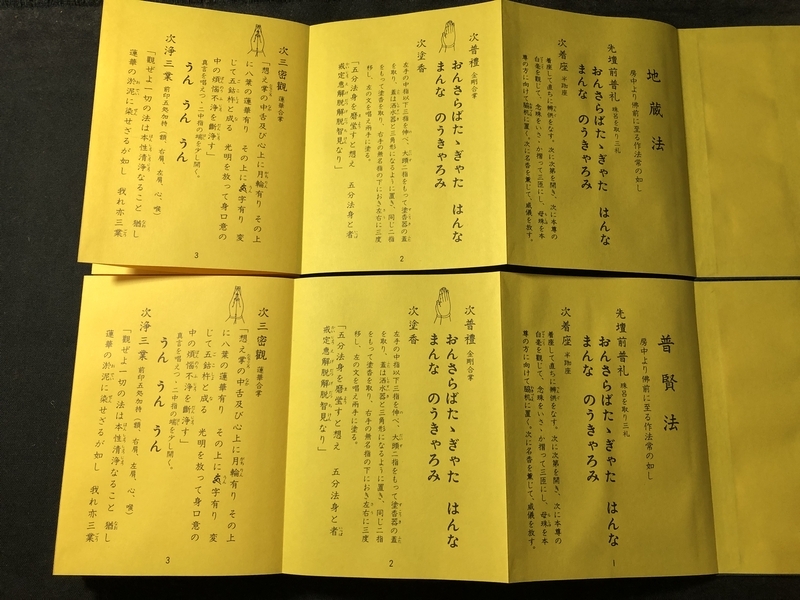 地蔵法
房中より佛前に至る作法常の如し
先壇前普礼 珠呂を取り三礼
おんさらばたゝぎゃた はんな
まんな のうきゃろみ
次着座 半跏座
着座して直ちに辨供をなす。次に次第を開き、次に本尊の
白毫を観じて、念珠をいさゝか摺って三匝にし、母珠を本
尊の方に向けて脇机に置く。次に名香を薫じて、威儀を放す。
次普禮 金剛合掌
おんさらばたゝぎゃた はんな
まんな のうきゃろみ
次塗香
左手の中指以下三指を伸べ、大頭二指をもって塗香器の蓋
を取り、蓋は洒水器と三角形になるように置き、同じ二指
をもって塗香を取り、右手の無名指の下におき左右に三度
移し、左の文を唱え両手に塗る。
「五分法身を磨瑩すと想え 五分法身と者
戒定恵解脱解脱智見なり」
2
次三密觀 蓮華合掌
「想え掌の中舌及び心上に月輪有り その上
に八葉の蓮華有り その上に字有り 変
じて五鈷杵と成る 光明を放って身口意の
中の煩惱不浄を斷淨す」
真言を唱えつゝ二中指の端を少し開く。
うん うん うん
次浄三業 前印五処加持(額、右肩、左肩、心、喉)
「觀ぜよ一切の法は本性清淨なること 猶し
蓮華の淤泥に染せざるが如し 我れ亦三業
3
普賢法
房中より佛前に至る作法常の如し
先壇前普礼 珠呂を取り三礼
おんさらばたゝぎゃた はんな
まんな のうきゃろみ
次着座 半跏座
着座して直ちに辨供をなす。次に次第を開き、次に本尊の
白毫を観じて、念珠をいさゝか摺って三匝にし、母珠を本
尊の方に向けて脇机に置く。次に名香を薫じて、威儀を放す。
1
次普禮 金剛合掌
おんさらばたゝぎゃた はんな
まんな のうきゃろみ
次塗香
左手の中指以下三指を伸べ、大頭二指をもって塗香器の蓋
を取り、蓋は洒水器と三角形になるように置き、同じ二指
をもって塗香を取り、右手の無名指の下におき左右に三度
移し、左の文を唱え両手に塗る。
「五分法身を磨瑩すと想え 五分法身と者
戒定恵解脱解脱智見なり」
2
次三密觀 蓮華合掌
「想え掌の中舌及び心上に月輪有り その上
に八葉の蓮華有り その上に字有り 変
じて五鈷杵と成る 光明を放って身口意の
中の煩惱不浄を斷淨す」
真言を唱えつゝ二中指の端を少し開く。
うん うん うん
次浄三業 前印五処加持(額、右肩、左肩、心、喉)
「觀ぜよ一切の法は本性清淨なること 猶し
蓮華の淤泥に染せざるが如し 我れ亦三業
3